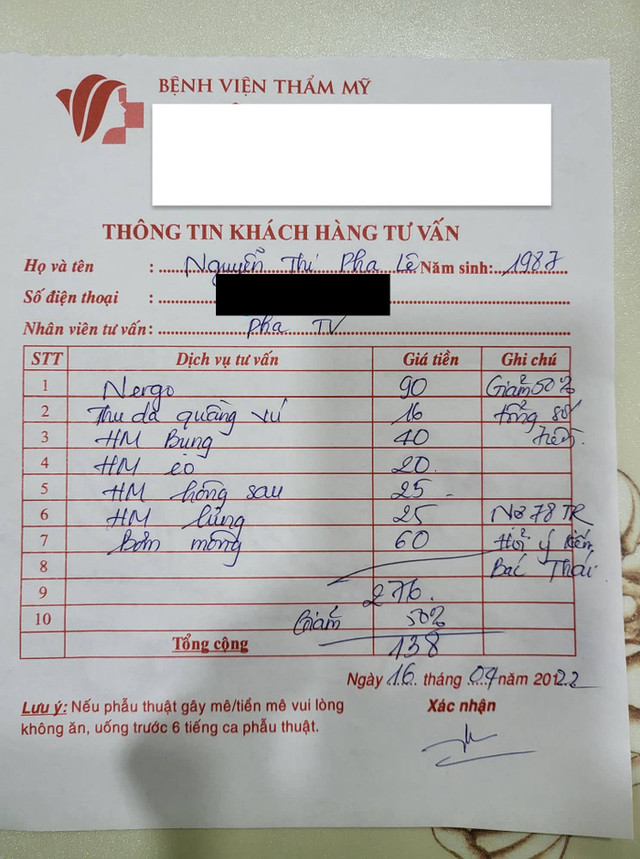 BỆNH VIỆN THẨM MỸ
THÔNG TIN KHÁCH HÀNG TƯ VẤN
Họ và tên : Nguyễn Thị Pha Lê Năm sinh: 1987
Số điện thoại :
Nhân viên tư vấn: Pha TV
STT Dịch vụ tư vấn Giá tiền Ghi chú
1 Nergo 90 Giảm 50%
2 Thu da quầng vú 16 tổng số
3 HM Bụng 40 tiền.
4 HM eo 20
5 HM hông sau 25
6 HM lưng 25 Nợ 78 TR
7 Bơm mông 60 Hỏi ý kiến
8 Bác Thái
9 276
10 Giảm 50%
Tổng cộng 138
Ngày 16 tháng 04 năm 2022
Lưu ý: Nếu phẫu thuật gây mê/tiền mê vui lòng Xác nhận
không ăn, uống trước 6 tiếng ca phẫu thuật.